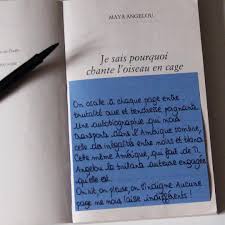 MAYA ANGELOU
Je sais pourquoi
chante l'oiseau en cage
On oscille à chaque page entre
brutalité que et tendresse poignante
Une autobiographie qui nous
transporte dans l'Amérique sombre,
celle des inégalités entre noirs et blancs
Cette même Amérique, qui fait de
Angelou la brillante auteure engagée
qu'elle est.
On rit, on pleure, on s'indigne. Aucune
page ne nous laisse indifférents !